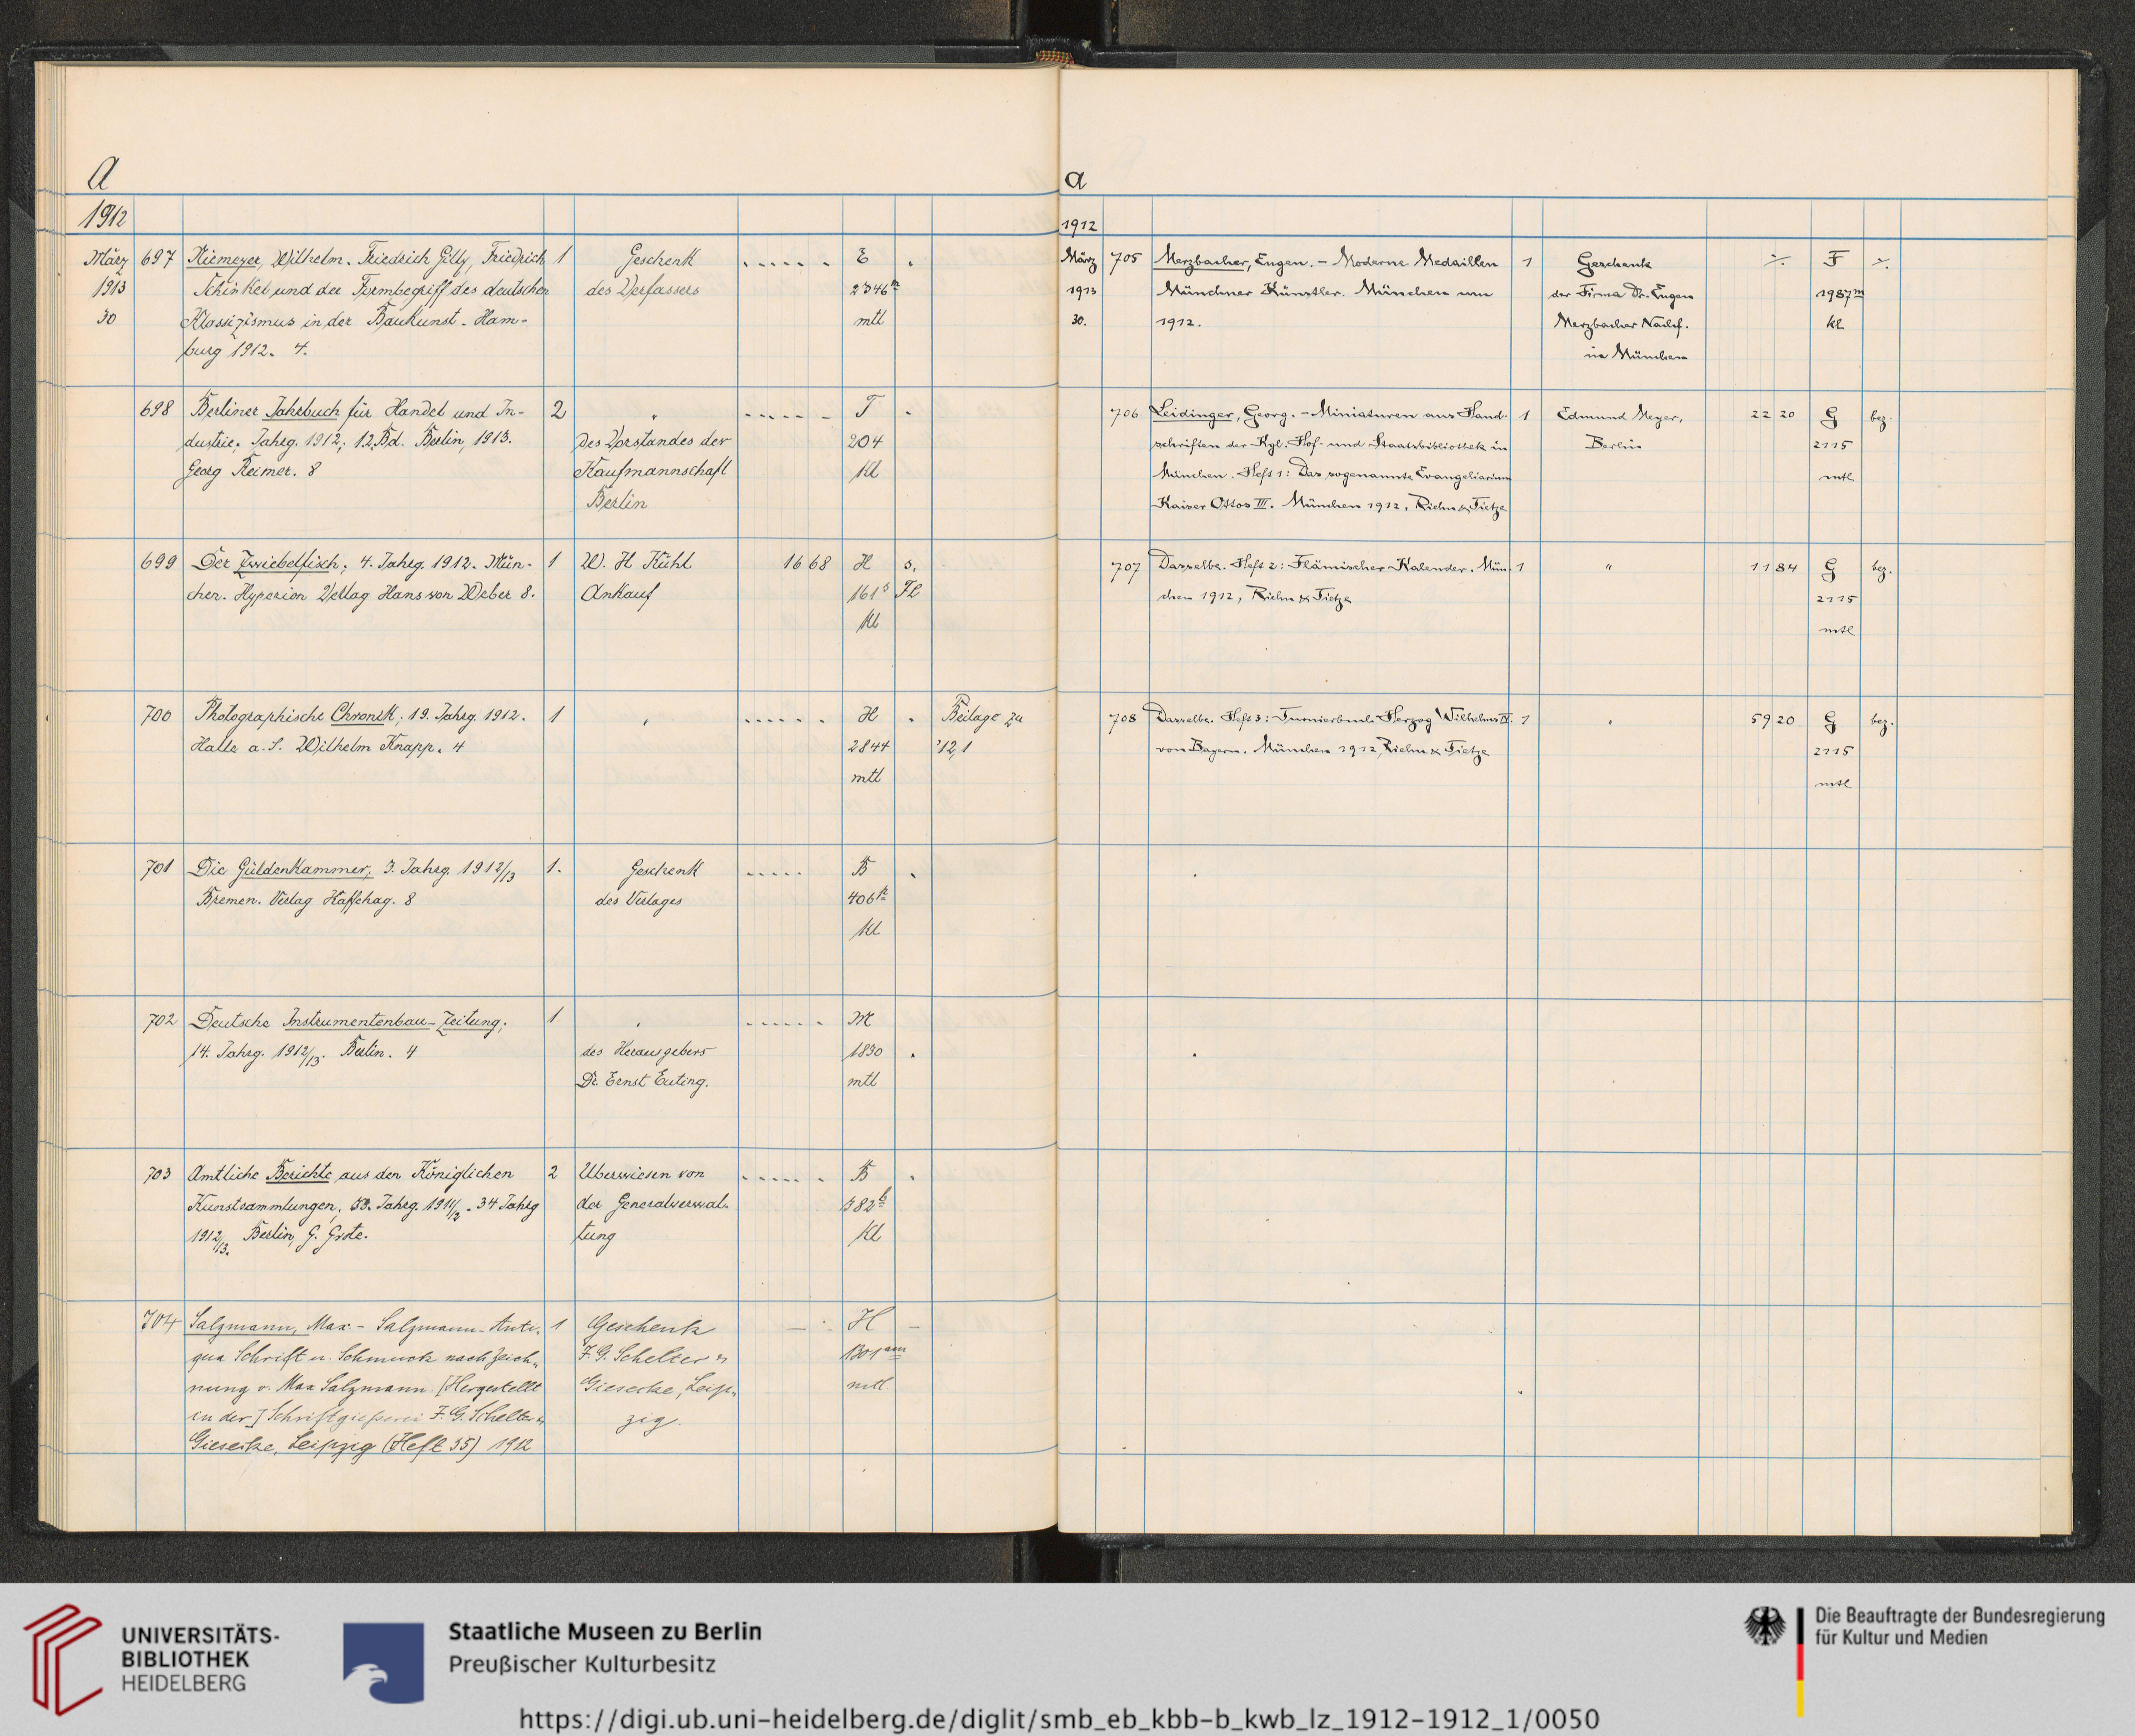 A
1912
März 697 Niemeyer, Wilhelm. Friedrich Gilly, Friedrich 1 Geschenk E
1913 Schinkel und der Formbegriff des deutschen des Verfassers 2346m
30 Klassizismus in der Baukunst. Ham- mtl
burg 1912. 4.
698 Berliner Jahrbuch für Handel und In- 2 " T
dustrie; Jahrg. 1912; 1.2.Bd. Berlin, 1913. des Vorstandes der 204
Georg Reimer. 8 Kaufmannschaft Kl
Berlin
699 Der Zwiebelfisch; 4. Jahrg. 1912. Mün- 1 W. H. Kühl 16 68 H s.
chen. Hyperion Verlag Hans von Weber 8. Ankauf 161s Fl
Kl
700 Photographische Chronik; 19. Jahrg. 1912. 1 " H Beilage zu
Halle a. S. Wilhelm Knapp. 4 2844 '12,1
mtl
701 Die Güldenkammer; 3. Jahrg. 1912/13 1. Geschenk B
Bremen. Verlag Kaffehag. 8 des Verlages 406k
Kl
702 Deutsche Instrumentenbau-Zeitung; 1 " M
14. Jahrg. 1912/13. Berlin. 4 des Herausgebers 1830
Dr. Ernst Euting. mtl
703 Amtliche Berichte aus den Königlichen 2 Überwiesen von B
Kunstsammlungen; 33. Jahrg. 1911/2. 34 Jahrg der Generalverwal- 382b
1912/13. Berlin, G. Grote. tung Kl
704 Salzmann, Max - Salzmann-Anti- 1 Geschenk H
qua Schrift u. Schmuck nach Zeich- F. G. Schelter &
nung v. Max Salzmann. [Hergestellt Giesecke, Leip- mtl.
in der] Schriftgießerei F. G. Schelter & zig.
Giesecke, Leipzig (Heft 35) 1912
a
1912
März 705 Merzbacher, Eugen. - Moderne Medaillen 1 Geschenk ./. F ./.
1913 Münchner Künstler. München um der Firma Dr. Eugen 1987m
30. 1912. Merzbacher Nachf. kl
in München
706 Leidinger, Georg. - Miniaturen aus Hand- 1 Edmund Meyer, 22 20 G bez.
schriften der Kgl. Hof- und Staatsbibliothek in Berlin 2115
München. Heft 1: Das sogenannte Evangeliarium mtl
Kaiser Ottos III. München 1912, Riehn & Tietze
707 Dasselbe. Heft 2: Flämischer Kalender. Mün- 1 " 11 84 G bez.
chen 1912, Riehn & Tietze 2115
mtl
708 Dasselbe. Heft 3: Turnierbuch Herzog Wilhelms IV. 1 " 59 20 G bez.
von Bayern. München 1912, Riehn & Tietze 2115
mtl
UNIVERSITÄTS-
BIBLIOTHEK
HEIDELBERG
Staatliche Museen zu Berlin
Preußischer Kulturbesitz
Die Beauftragte der Bundesregierung
für Kultur und Medien
https://digi.ub.uni-heidelberg.de/diglit/smb_eb_kbb-b_kwb_lz_1912-1912_1/0050